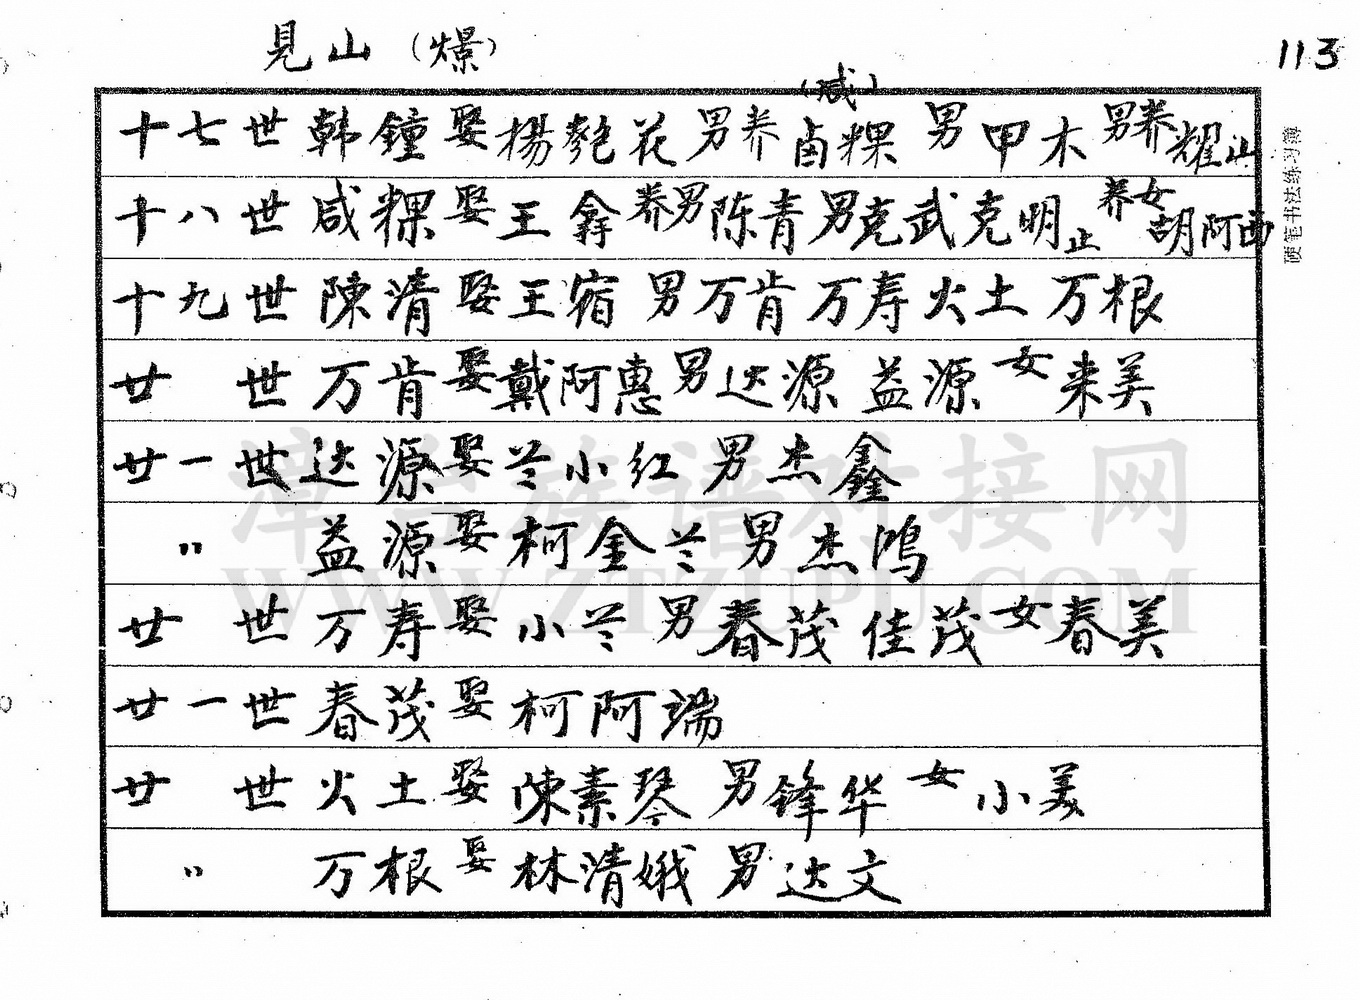 見山（燝） 113
（咸）
十七世韩鐘娶楊艶花男养卤粿男甲木男养耀山
十八世咸粿娶王鑫养男陈青男克武克明止养女胡阿西
十九世陳清娶王宿男万肯万寿火土万根
廿世万肯娶戴阿惠男达源益源女来美
廿一世达源娶兰小红男杰鑫
〃益源娶柯金兰男杰鸿
廿世万寿娶小兰男春茂佳茂女春美
廿一世春茂娶柯阿端
廿世火土娶陳素琴男锋华女小美
〃万根娶林清娥男达文
硬笔书法练习簿
漳台族谱对接网
WWW.ZTZUPU.COM